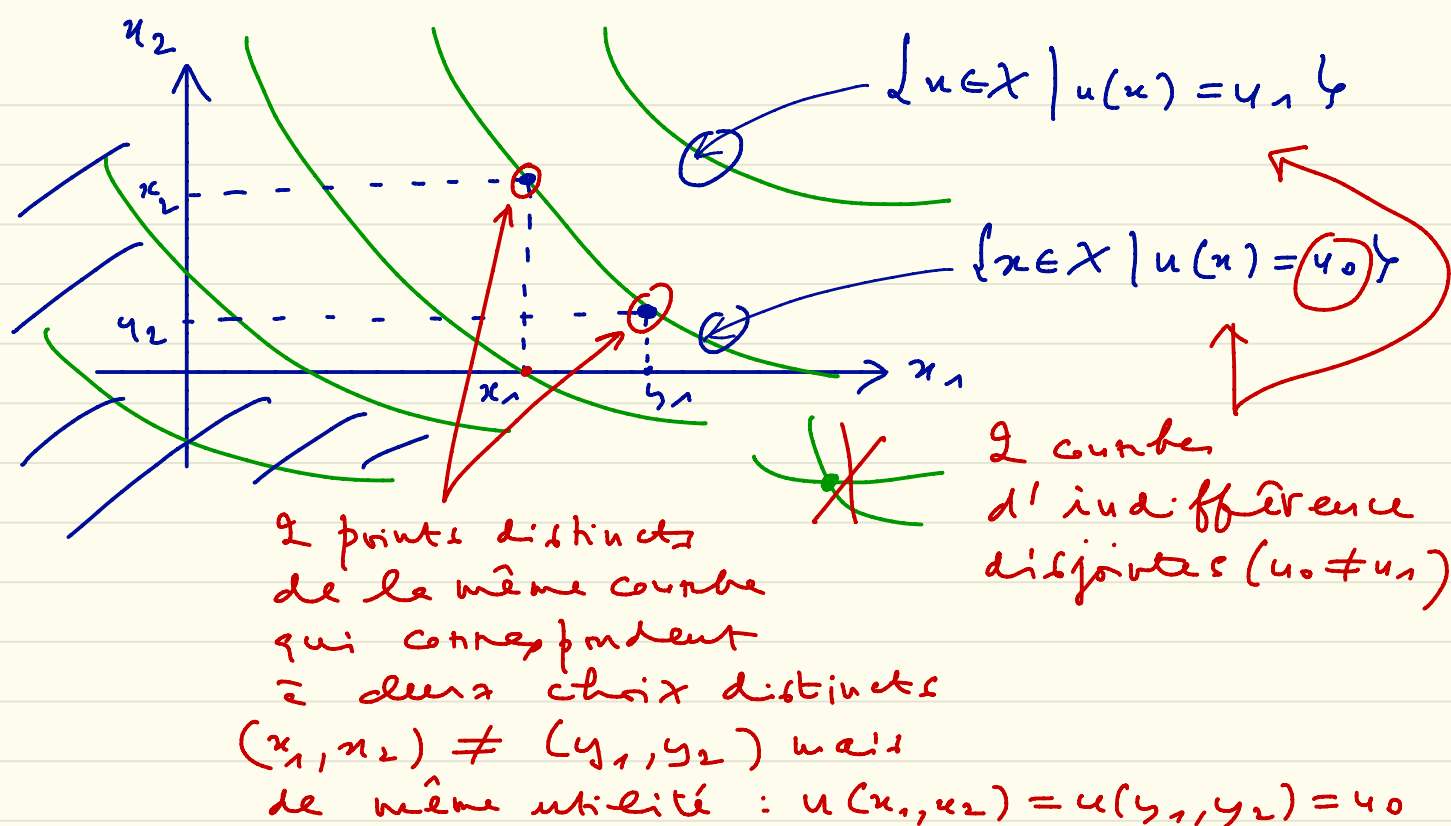 x₂
{x ∈ X | u(x) = u₁}
x₂
{x ∈ X | u(x) = u₀}
y₂
x₁ y₁ x₁
2 courbes
d'indifférence
disjointes (u₀ ≠ u₁)
2 points distincts
de la même courbe
qui correspondent
à deux choix distincts
(x₁, x₂) ≠ (y₁, y₂) mais
de même utilité : u(x₁, x₂) = u(y₁, y₂) = u₀